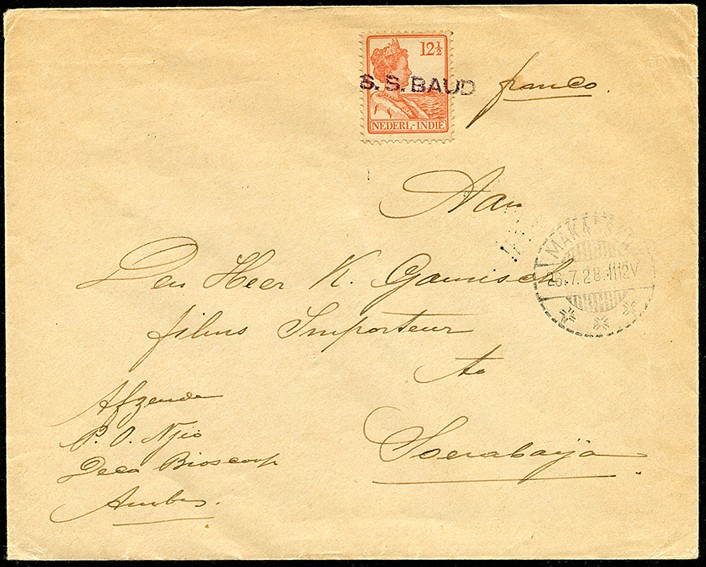 12½
S.S. BAUD
NEDERL.-INDIE
franco.
Aan
MAKASSER
26.7.28.1112V
Den Heer K. Gamisch
films Importeur
te
Soerabaija
Afzender
P. O. Njio
Deca Bioscoop
Ambon.